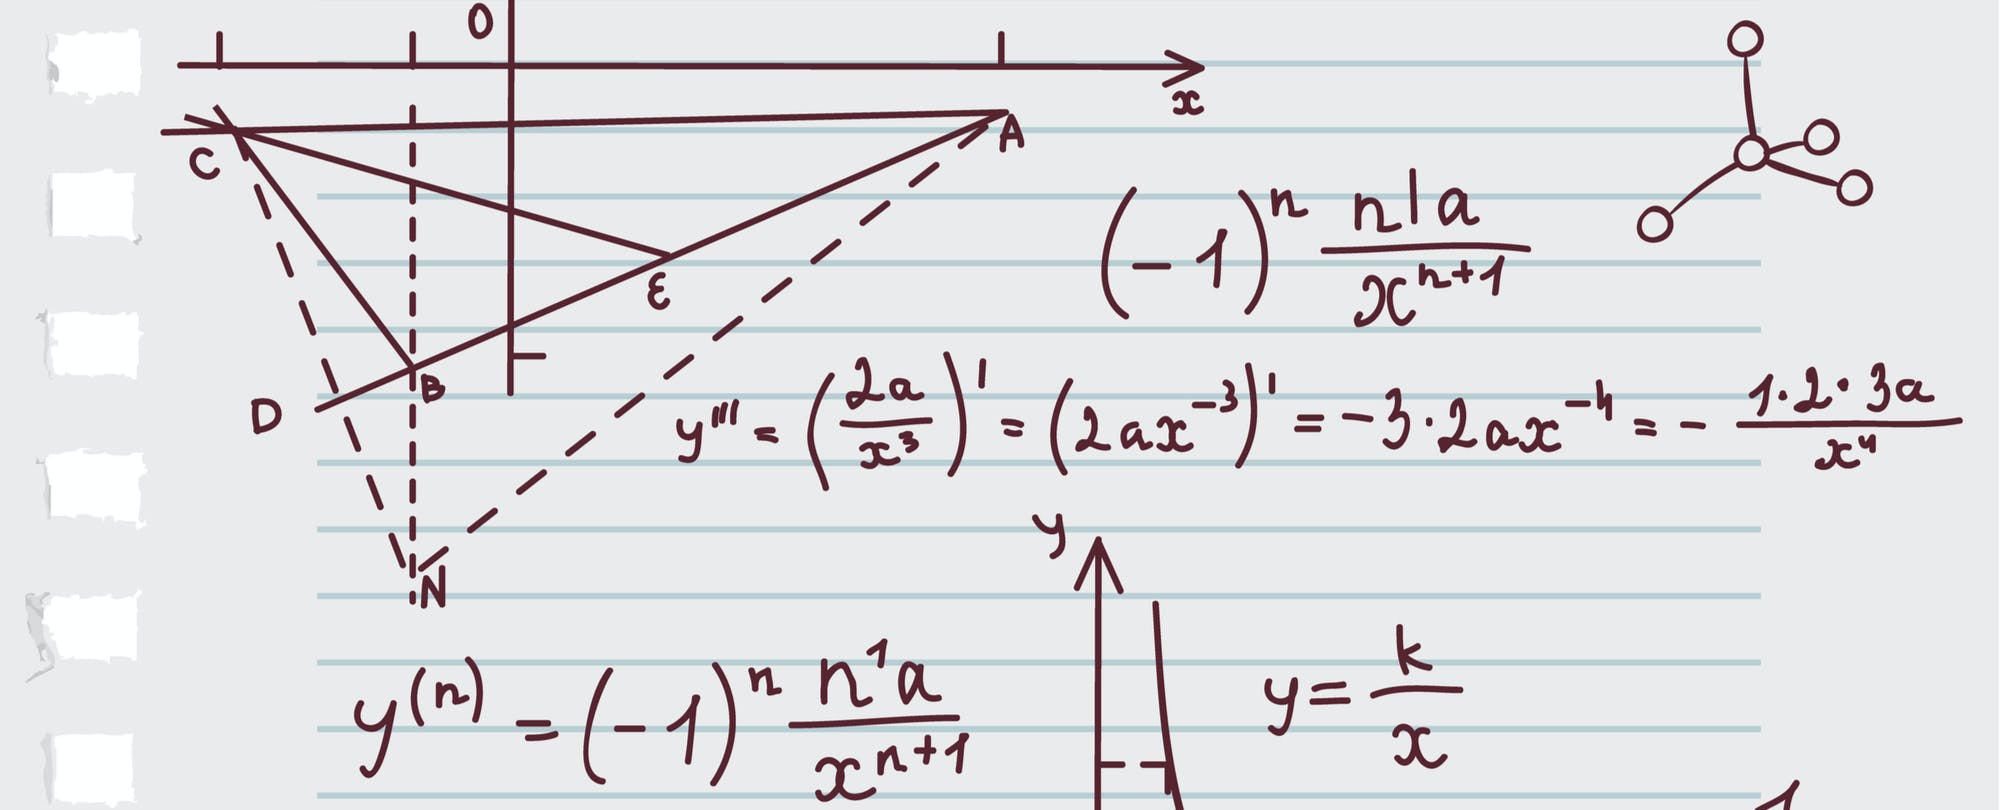 0
x
C
A
E
B
D
N
(-1)^n n|a / x^{n+1}
y''' = (2a / x^3)' = (2ax^{-3})' = -3·2ax^{-4} = - 1·2·3a / x^4
y
y^{(n)} = (-1)^n n^1 a / x^{n+1}
y = k / x